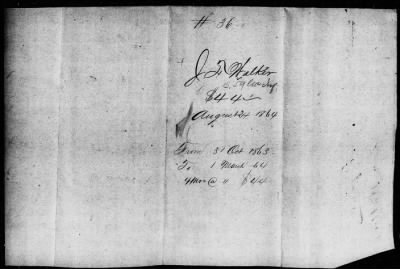 # 36
J. T. Walker
$44
August 24 1864
From 31 Oct 1863
To 1 March 64
4 Mos @ 11 $44